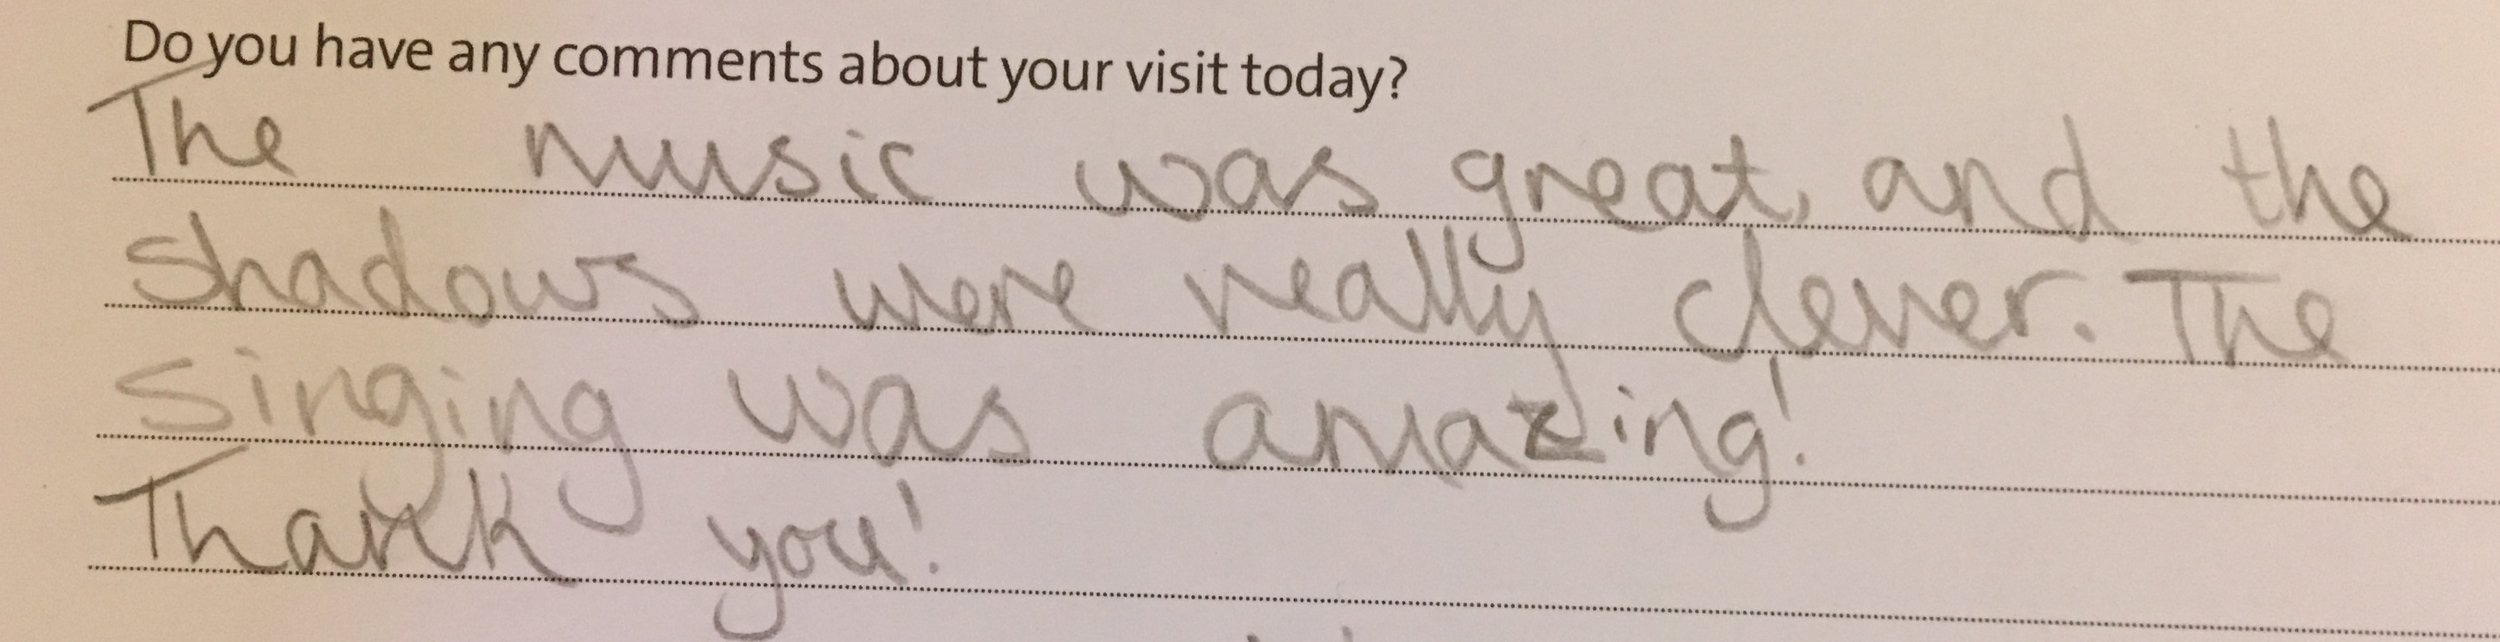 Do you have any comments about your visit today?
The music was great, and the
shadows were really clever. The
singing was amazing!
Thank you!